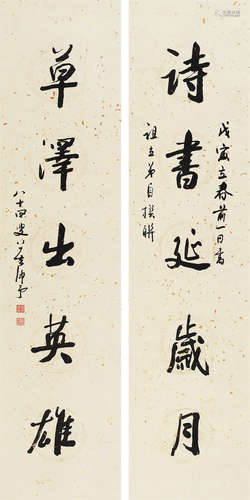 詩書延歲月
戊寅立春前一日書
祖立弟自撰聯
草澤出英雄
八十四叟